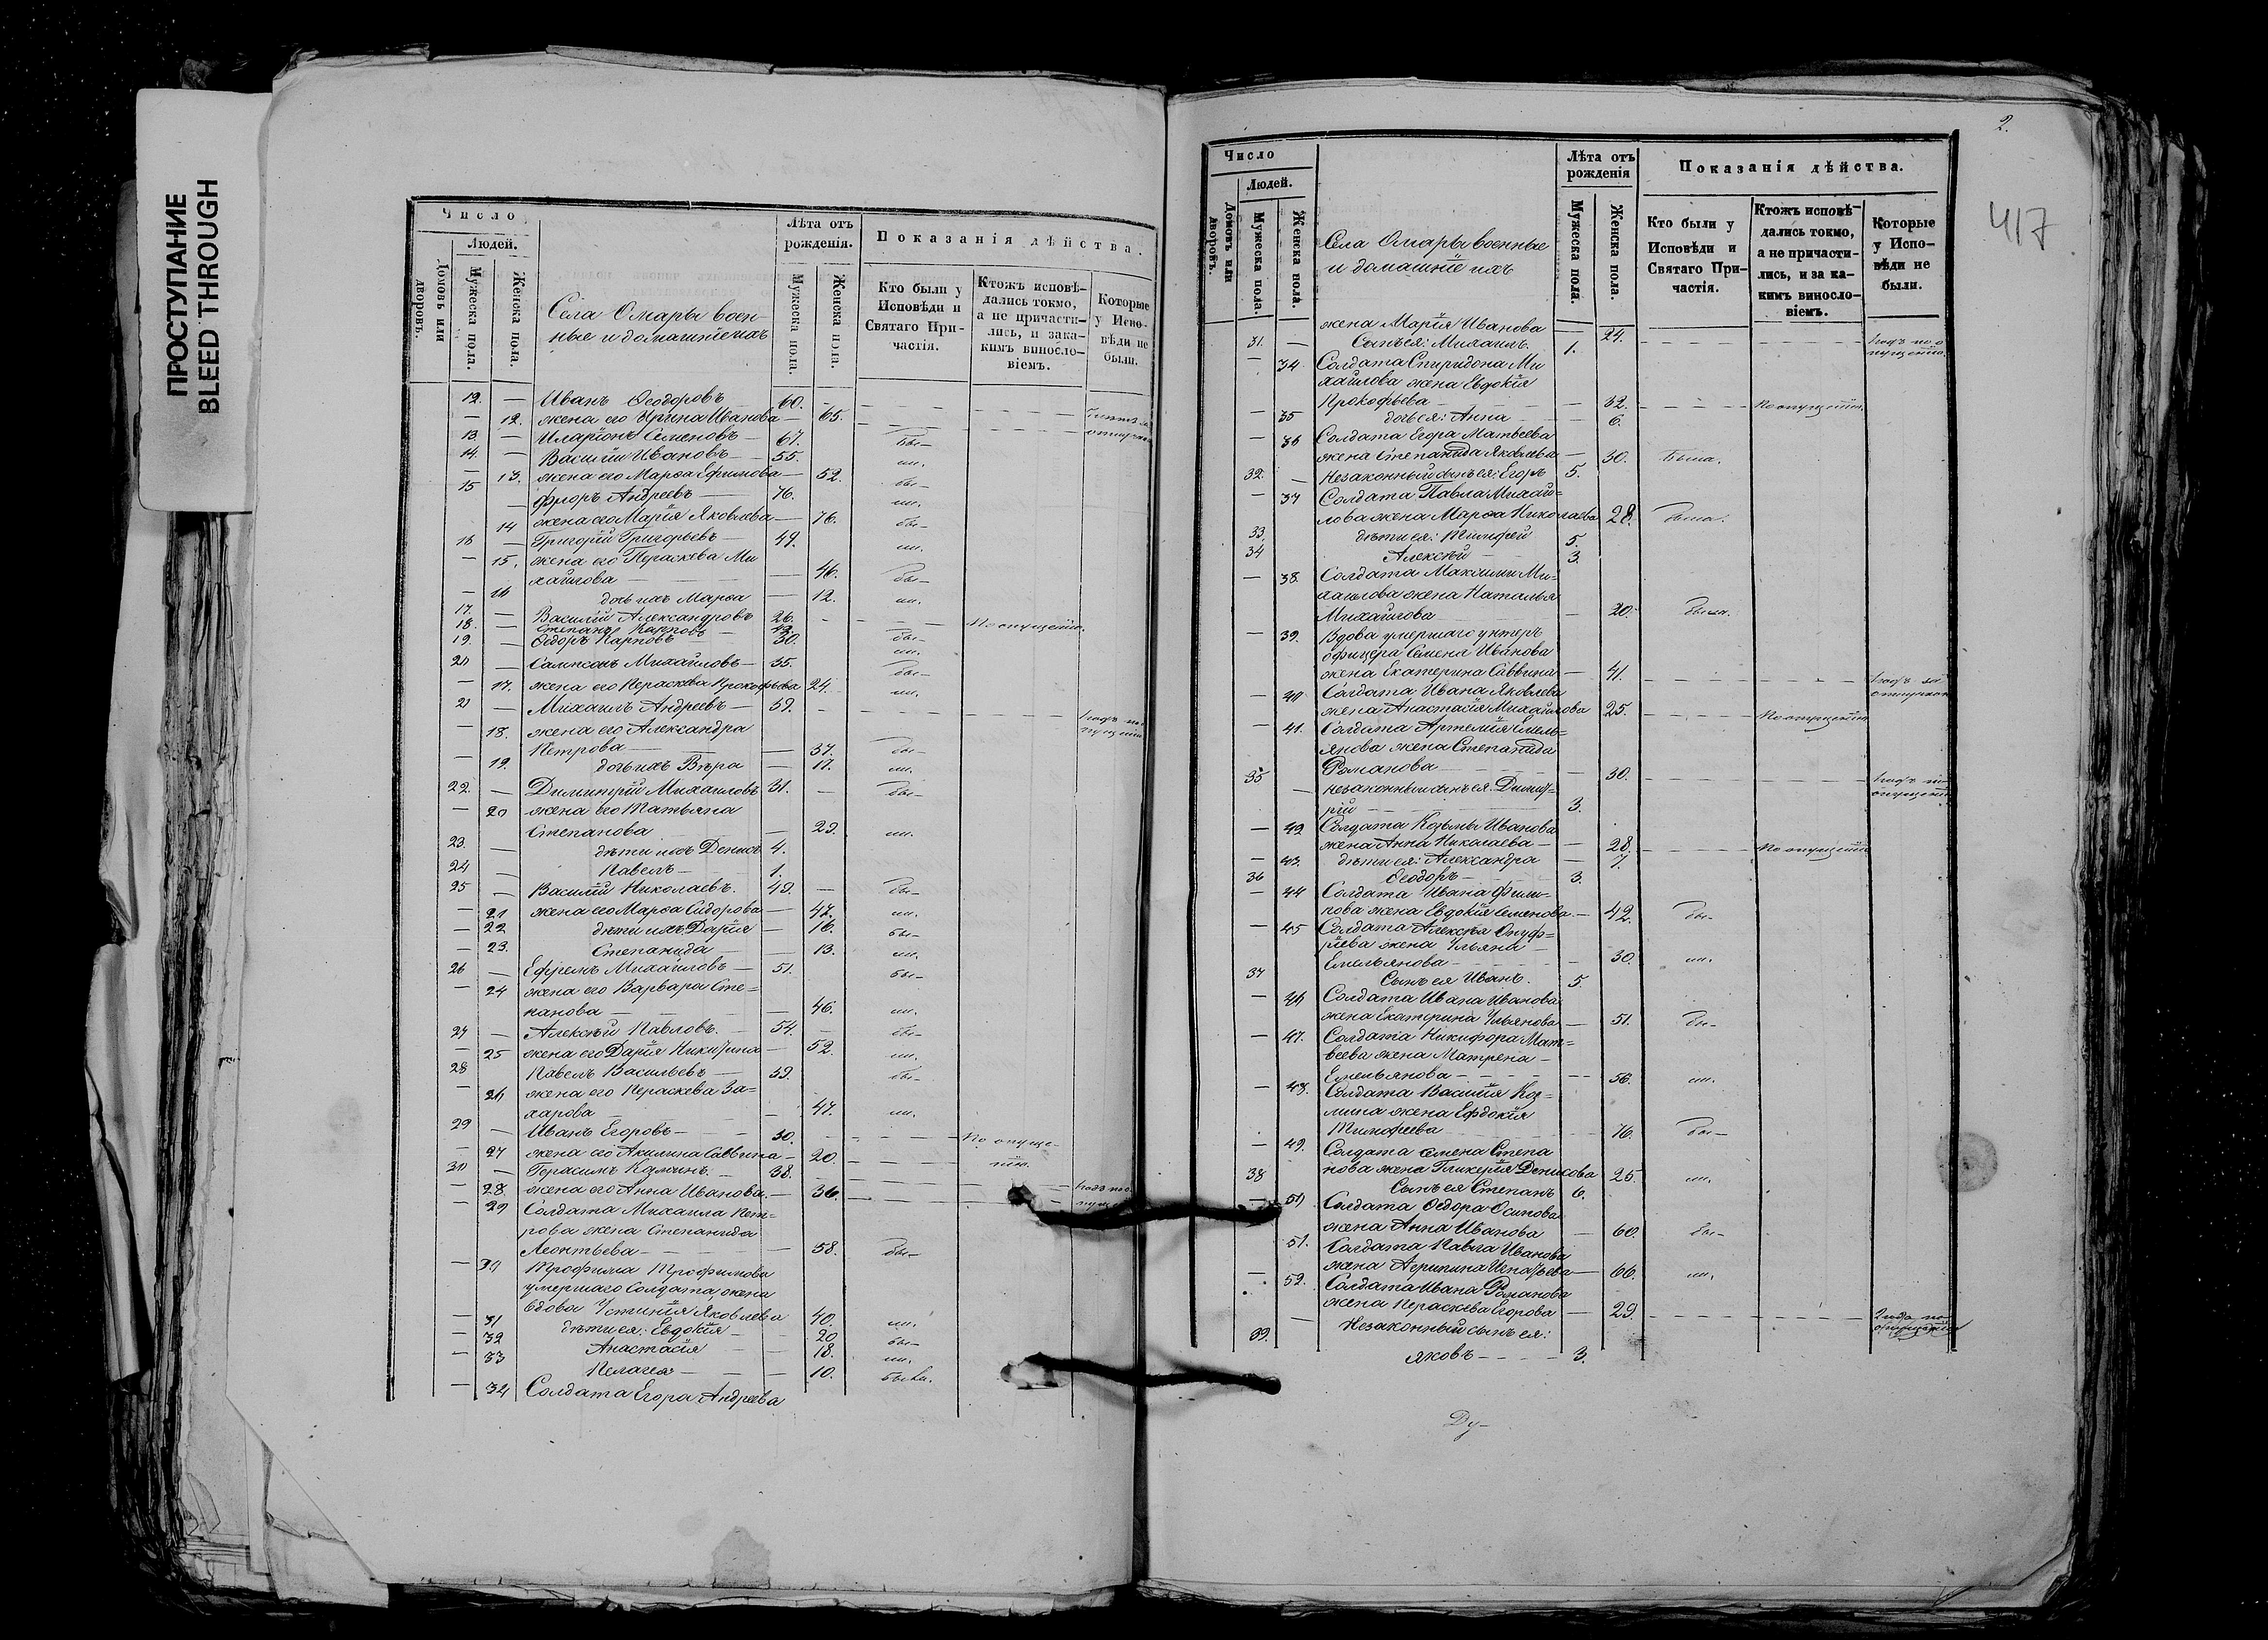 ПРОСТУПАНИЕ
BLEED THROUGH
Число
Людей.
Домовъ или дворовъ.
Мужеска пола.
Женска пола.
Села Омары воен-
ные и домашніе ихъ
Лѣта отъ рожденія.
Мужеска пола.
Женска пола.
Показанія дѣйства.
Кто были у Исповѣди и Святаго При-частія.
Ктожъ исповѣ-дались токмо, а не причасти-лись, и зака-кимъ винословіемъ.
Которые у Испо-вѣди не были.
12. — Иванъ Ѳеодоровъ 60.
— 12. жена его Ирина Иванова — 65.
13. — Иларіонъ Семеновъ — 67. бы-
14. — Василій Ивановъ — 55. ли.
— 13. жена его Марѳа Ефимова — 52. бы-
15 — Флоръ Андреевъ — 76. ли.
14 жена его Марія Яковлева — 76. бы-
16 — Григорій Григорьевъ — 49. ли.
— 15. жена его Параскева Ми
хайлова — 46. бы-
— 16 дочь ихъ Марѳа — 12. ли.
17. — Василій Александровъ 26. По опущенію.
18. — Степанъ Карповъ 43.
19. — Ѳедоръ Карповъ — 30. бы-
ли.
20 — Сампсонъ Михайловъ — 35. бы-
— 17. жена его Пераскева Прокофьева 24. ли.
21 — Михаилъ Андреевъ — 39.
— 18. жена его Александра
Петрова — 37. бы-
— 19. дочь ихъ Вѣра — 17. ли.
22. — Димитрій Михайловъ 31. — бы-
— 20 жена его Татьяна
Степанова — 29. ли.
23. — дѣти ихъ Денисъ 4.
24 — Павелъ — 1.
25 — Василій Николаевъ. 49. — бы-
— 21 жена его Марѳа Сидорова — 47. ли.
— 22 дѣти ихъ Дарія — 16. бы-
— 23. Степанида — 13. ли.
26 — Ефремъ Михайловъ — 51. бы-
— 24 жена его Варвара Сте=
панова — 46. ли.
27 — Алексѣй Павловъ. — 54. — бы-
— 25 жена его Дарія Никитина — 52. ли.
28 Павелъ Васильевъ — 39. бы-
— 26 жена его Пераскева За=
харова — 47. ли.
29 — Иванъ Егоровъ — 30. По опуще-
— 27 жена его Акилина Саввина — 20. нію.
30 — Герасимъ Козминъ. — 38.
— 28. жена его Анна Иванова. — 36.
— 29 Солдата Михаила Пет=
рова жена Степанида
Леонтьева — 58. бы-
— 30 Трофима Трофимова
умершаго Солдата, жена
вдова Устинія Яковлева 40. ли.
— 31 дѣти ея: Евдокія — 20. бы-
— 32 Анастасія — 18. ли.
— 33 Пелагея — 10. была.
— 34 Солдата Егора Андреева
2.
417
Число
Людей.
Домовъ или дворовъ.
Мужеска пола.
Женска пола.
Села Омары военные
и домашніе ихъ
Лѣта отъ рожденія
Мужеска пола.
Женска пола.
Показанія дѣйства.
Кто были у Исповѣди и Святаго При-частія.
Ктожъ исповѣ-дались токмо, а не причасти-лись, и за ка-кимъ винословіемъ.
Которые у Испо-вѣди не были.
жена Марія Иванова — 24.
31. — Сынъ ея: Михаилъ. 1.
— 34 Солдата Спиридона Ми
хайлова жена Евдокія
Прокофьева — 32. По опущенію.
— 35 дочь ея: Анна — 6.
— 36 Солдата Егора Матвеева
жена Степанида Яковлева — 30. Была.
32. — Незаконный сынъ ея: Егоръ 5.
— 37 Солдата Павла Михай=
лова жена Марѳа Николаева 28. была.
33. дѣти ея: Тимофей 5.
34 Алексѣй — 3.
— 38. Солдата Максима Ми=
хайлова жена Наталья
Михайлова — 20. была.
— 39. Вдова умершаго унтеръ
офицера Семена Иванова
жена Екатерина Саввина — 41.
— 40 Солдата Ивана Яковлева
жена Анастасія Михайлова 25. По опущенію
— 41. Солдата Артемія Емель=
янова жена Степанида
Романова — 30.
35 — незаконный сынъ ея: Димит=
рій 3.
— 42 Солдата Козьмы Иванова
жена Анна Николаева — 28. По опущенію
— 43. дѣти ея: Александра — 7.
36 Ѳеодоръ — 3.
— 44 Солдата Ивана Филип=
пова жена Евдокія Семенова — 42. бы-
— 45 Солдата Алексѣя Онуф=
ріева жена Ульяна —
Емельянова — 30. ли.
37 Сынъ ея Иванъ. 5.
— 46 Солдата Ивана Иванова
жена Екатерина Ульянова — 51. бы-
— 47. Солдата Никифора Мат=
веева жена Матрена —
Емельянова — 56. ли.
— 48. Солдата Василія Коз=
мина жена Евдокія
Тимофеева 76. бы-
— 49. Солдата Семена Степа
нова жена Гликерія Денисова 25. ли.
38 Сынъ ея Степанъ 6.
— 50 Солдата Ѳедора Осипова
жена Анна Иванова — 60. бы-
51. Солдата Павла Иванова
жена Агрипина Игнатьева — 66. ли.
52. Солдата Ивана Романова
жена Пераскева Егорова — 29.
39. Незаконный сынъ ея:
Яковъ — 3.
Ду-